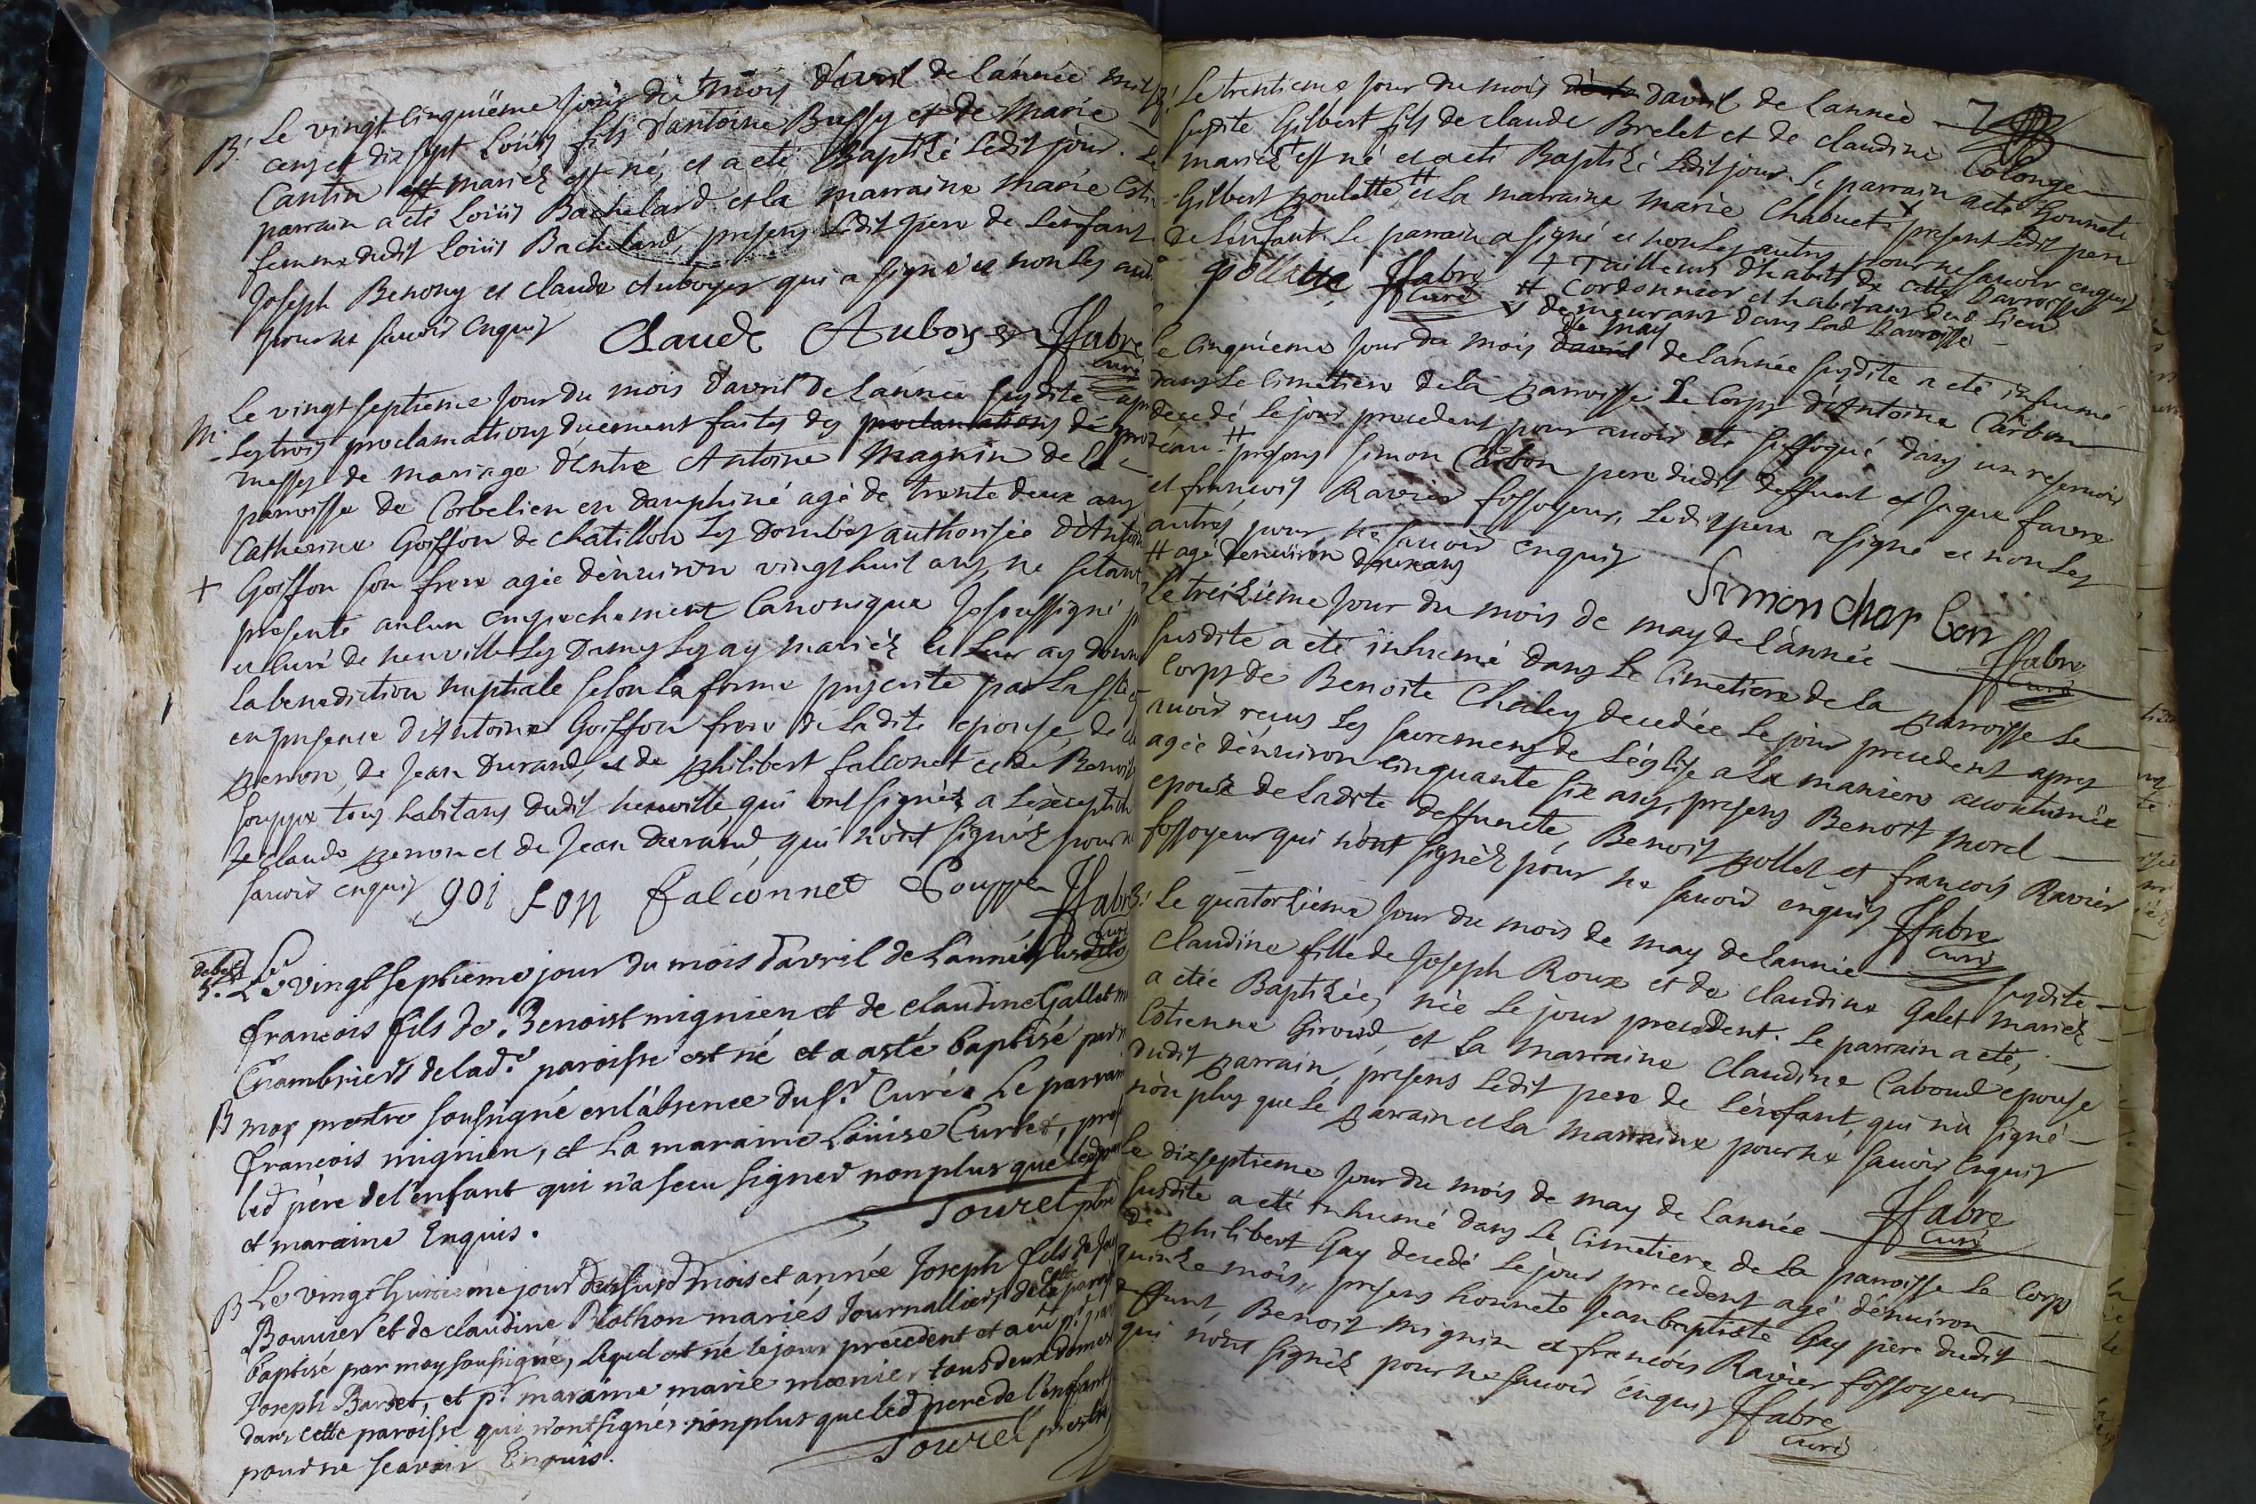 B. Le vingt cinquième jour du mois d'avril de l'année mil sept
cens et dix sept Loüis fils d'antoine Bussy et de Marie
Cantin mariez est né, et a eté Baptizé ledit jour. Le
parrain a eté Loüis Bachelard et la marraine Marie
femme dudit Loüis Bachelard, presens ledit pere de l'enfant
Joseph Benony et claude Auboyer qui a signé et non les
pour ne savoir enquis
Claude Auboyer ffabre
curé
M. Le vingt septieme jour du mois d'avril de l'année susdite
les trois proclamations duement faites des proclamations de
messes de mariage d'entre Antoine Magnin de la
paroisse de Corbelien en dauphiné agé de trente deux ans
Catherine Goiffon de chatillon les dombes authorisée d'Antoine
+ Goiffon son frere agée d'environ vingt huit ans, ne s'etant
presenté aulcun empechement Canonique Je soussigné
et curé de neuville les Dames les ay mariéz et leur ay donné
la benediction nuptiale selon la forme prescrite par la ste
en presence d'Antoine Goiffon frere de ladite epouse, de
perron, de Jean Durand, et de philibert falconet et de Benoit
souppe tous habitans dudit neuville qui ont signéz a l'exception
de claude perron et de Jean durand, qui n'ont signéz pour ne
savoir enquis goi fon falconnet Souppe ffabre
curé
Le vingt septieme jour du mois d'avril de l'année susdite
francois fils de Benoist mignien et de claudine Gallet
de lade paroisse est né et a asté baptisé par
B moy prestre soussigné en l'absence du sr. Curé. Le parrain
francois mignien, et la maraine Loüise Curtet,
led père de l'enfant qui n'a sceu signer non plus que led
et maraine Enquis. Touret ptre
B Le vingt huitieme jour desusd mois et année Joseph fils de
Bouvier et de claudine Blothon mariés Journalliers de cette paroisse
baptisé par moy soussigné, lequel est né le jour precedent et a eu pr
Joseph Barset, et pr. maraine marie monier tous deux
dans cette paroisse qui n'ont signés non plus que led pere de l'enfant
pour ne sçavoir Enquis. Touret prestre
7
Le trentieme jour du mois d'avril de l'année
susdite Gilbert fils de claude Brelet et de claudine Colonge
mariéz + est né et a eté Baptizé ledit jour. le parrain a eté honnete
Gilbert poulette # et la marraine Marie Chabuet v present ledit pere
de l'enfant. le parrain a signé et non les autres pour ne savoir enquis
pollatte ffabre
curé
+ Tailleurs d'habits de cette parroisse
# Cordonnier et habitans dud lieu
v demeurans dans lad parroisse
Le cinquieme jour du mois de may de l'année susdite a eté inhumé
dans le cimetiere de la parroisse Le Corps d'Antoine Carbon
decedé le jour precedent, pour avoir eté suffoqué dans un reservoir
d'eau # presens Simon Carbon pere dudit deffunt et Jaque favre
et francois Ravier fossoyeur, ledit pere a signé et non les
autres pour ne savoir enquis
# agé d'environ deux ans
Simon char bon
ffabre
curé
Le treizieme jour du mois de may de l'année
susdite a eté inhumé dans le cimetiere de la parroisse le
corps de Benoite Chaley decedée le jour precedent apres
avoir receu les sacremens de l'eglise a la maniere accoutumée
agée d'environ cinquante six ans, presens Benoit Morel
epoux de ladite deffuncte, Benoit pollet et francois Ravier
fossoyeur qui n'ont signéz pour ne savoir enquis
ffabre
curé
B. Le quatorzieme jour du mois de may de l'année susdite
claudine fille de Joseph Roux et de claudine Galet mariéz
a eté Baptizée, née le jour precedent. Le parrain a eté,
Estienne Giroud, et la Marraine Claudine Caboud epouse
dudit parrain, presens ledit pere de l'enfant, qui n'a signé
non plus que le parrain et la marraine pour ne savoir enquis
ffabre
curé
Le dixseptieme jour du mois de may de l'année
susdite a eté inhumé dans le cimetiere de la parroisse le Corps
de philibert Gay decedé le jour precedent agé d'environ
quinze mois, presens honnete Jean baptiste Gay pere dudit
deffunt, Benoit mignin et francois Ravier fossoyeur
qui n'ont signéz pour ne savoir enquis
ffabre
curé